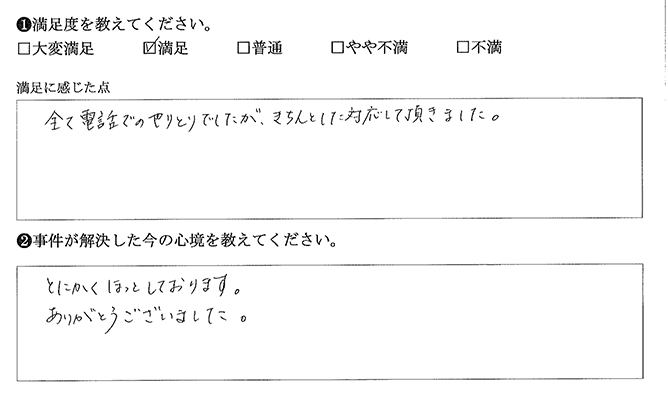 ❶満足度を教えてください。
□大変満足 ☑満足 □普通 □やや不満 □不満
満足に感じた点
全て電話でのやりとりでしたが、きちんとした対応して頂きました。
❷事件が解決した今の心境を教えてください。
とにかくほっとしております。
ありがとうございました。